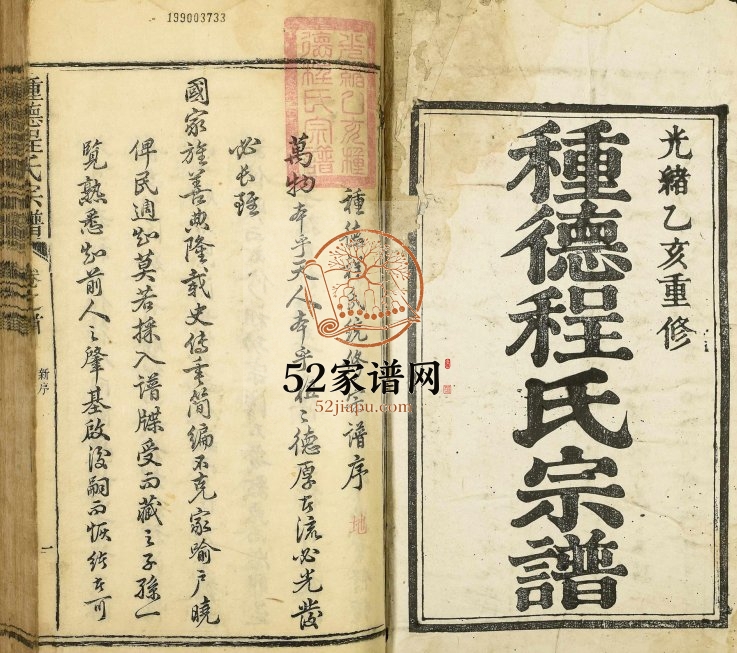 199003733
光緒乙亥重修
種德程氏宗譜
光緒乙亥種
德程氏宗譜
種德程氏統修宗譜序
萬物本乎天人本乎祖祖德厚者流必光發
必長經
國家旌善典隆載史傳垂簡編不克家喻戶曉
俾民週知莫若採入譜牒受而藏之子孫一
覽熟悉知前人之肇基啟後嗣而恢緒者可
種德程氏宗譜
卷之首
新序
一
地
52家谱网
52jiapu.com